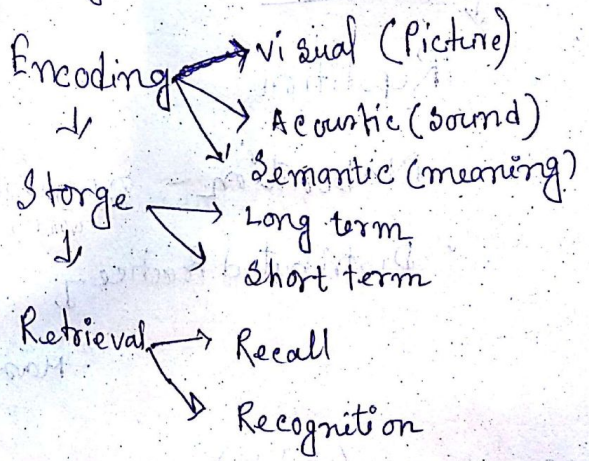 Encoding → Visual (Picture)
→ Acoustic (Sound)
→ Semantic (meaning)
↓
Storge → Long term
↓
→ Short term
Retrieval → Recall
→ Recognition